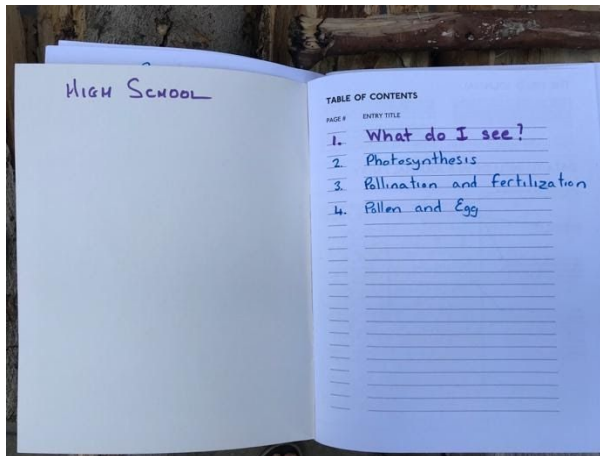 HIGH SCHOOL
TABLE OF CONTENTS
PAGE # ENTRY TITLE
1. What do I see?
2. Photosynthesis
3. Pollination and fertilization
4. Pollen and Egg